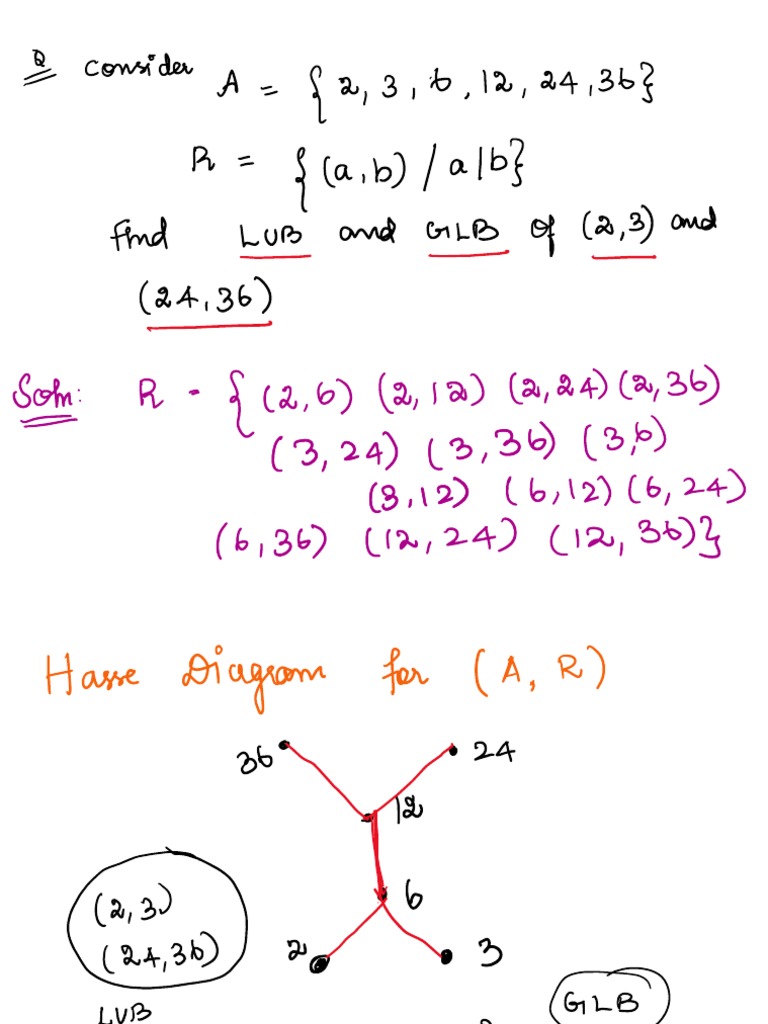 Q consider A = {2, 3, 6, 12, 24, 36}
R = {(a,b) / a|b}
Find LUB and GLB of (2,3) and
(24,36)
Soln: R = {(2,6) (2,12) (2,24) (2,36)
(3,24) (3,36) (3,6)
(3,12) (6,12) (6,24)
(6,36) (12,24) (12,36)}
Hasse Diagram for (A, R)
36 24
12
6
(2,3)
(24,36)
2 3
LUB
GLB